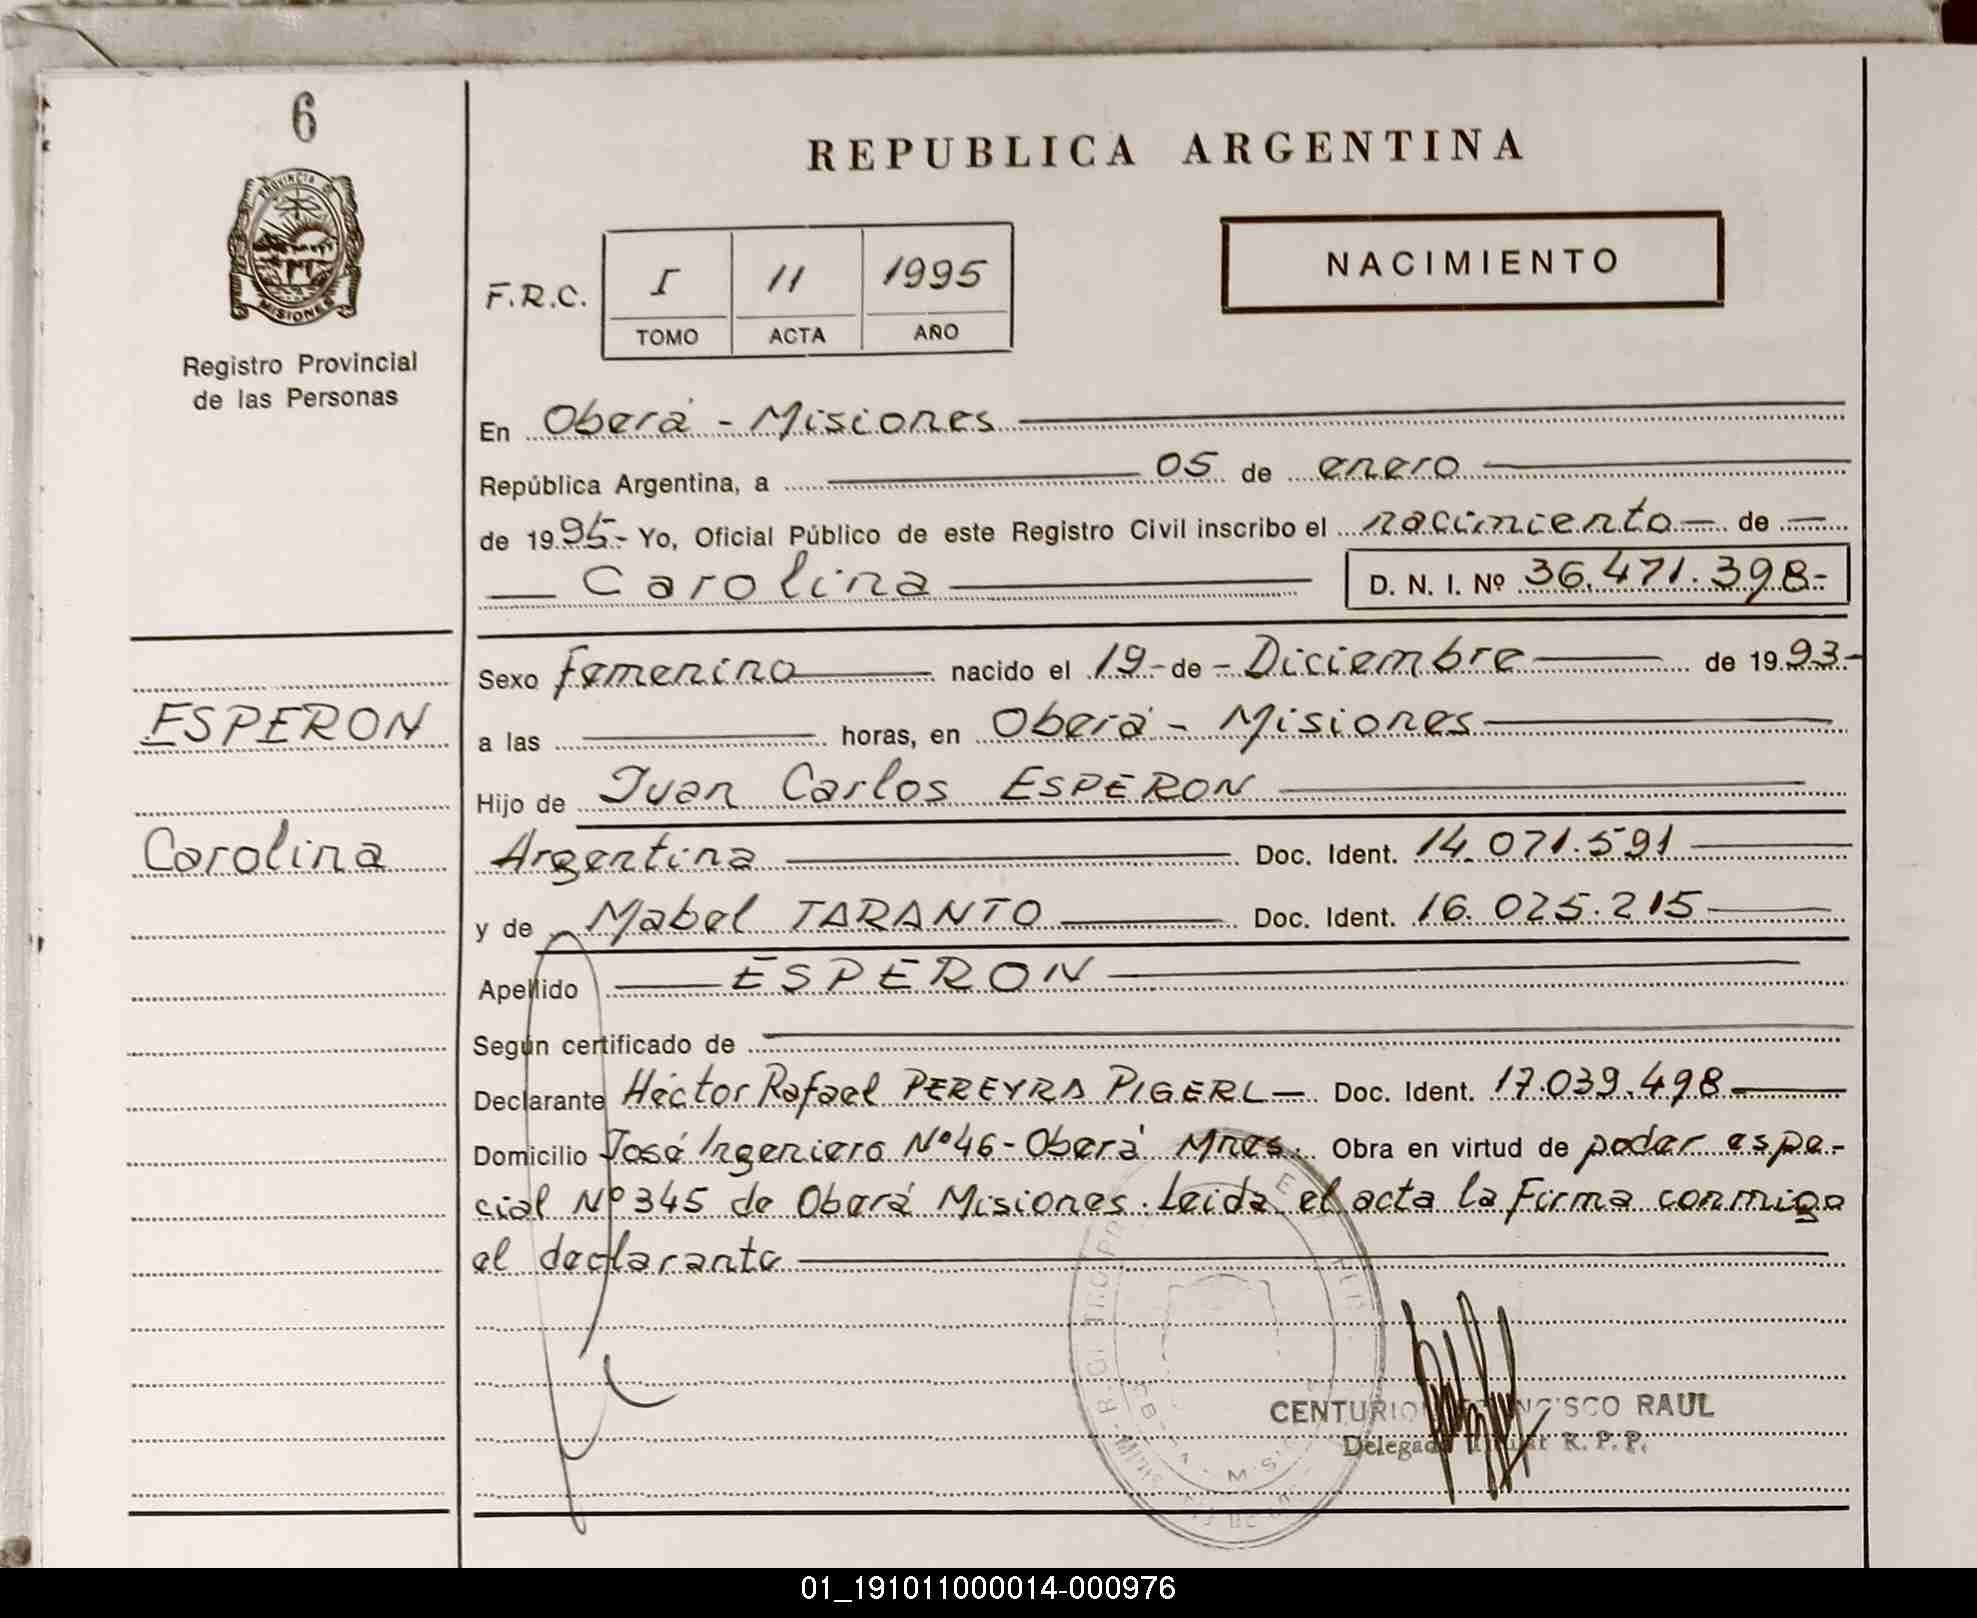 6
PROVINCIA DE
MISIONES
Registro Provincial
de las Personas
REPUBLICA ARGENTINA
NACIMIENTO
F.R.C. I 11 1995
TOMO ACTA AÑO
En Oberá - Misiones
República Argentina, a 05 de enero
de 1995- Yo, Oficial Público de este Registro Civil inscribo el nacimiento - de -
Carolina D. N. I. Nº 36.471.398-
ESPERON
Carolina
Sexo femenino nacido el 19- de - Diciembre de 1993.-
a las horas, en Oberá - Misiones
Hijo de Juan Carlos ESPERON
Argentina Doc. Ident. 14.071.591
y de Mabel TARANTO Doc. Ident. 16.025.215
Apellido ESPERON
Según certificado de
Declarante Héctor Rafael PEREYRA PIGERL - Doc. Ident. 17.039.498
Domicilio José Ingeniero Nº 46 - Oberá Mnes. Obra en virtud de poder espe-
cial Nº 345 de Oberá Misiones. Leida el acta la firma conmigo
el declarante
CENTURION FRANCISCO RAUL
Delegado Titular R. P. P.
01_191011000014-000976